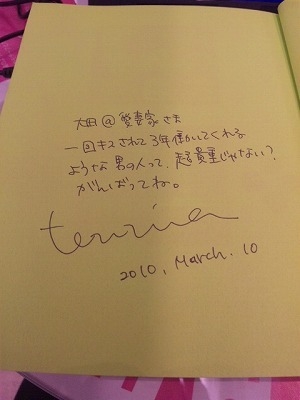 大田@愛妻家さま
一回キスされて3年働いてくれる
ような男の人って、超貴重じゃない?
がんばってね。
2010, March. 10